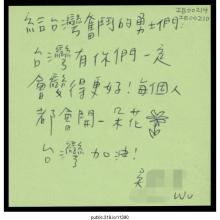 IB00214
IB00210
給台灣奮鬥的勇士們:
台灣有你們一定
會變得更好!每個人
都會開一朵花
台灣加油!
吴
WU
public.318.io/11380